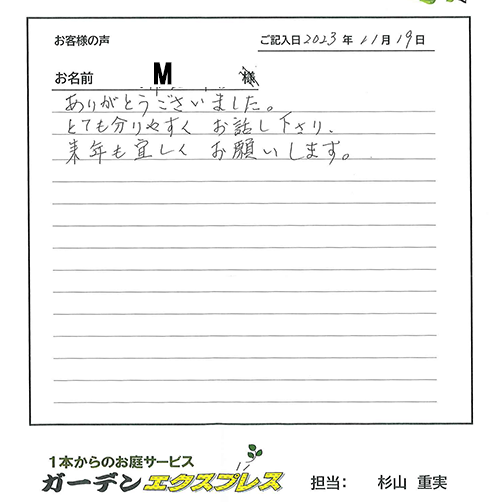 お客様の声 ご記入日2023年11月19日
お名前 M 様
ありがとうございました。
とても分りやすく お話し下さり、
来年も宜しく お願いします。
1本からのお庭サービス
ガーデンエクスプレス 担当: 杉山 重実